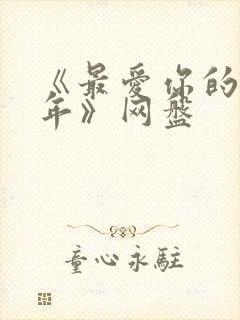 《最爱你的
年》 网盘
童心永駐